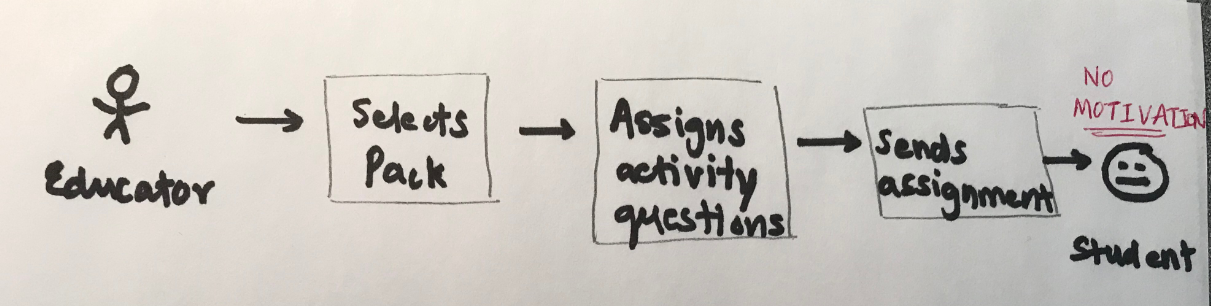 Educator
Selects
Pack
Assigns
activity
questions
Sends
assignment
NO
MOTIVATION
Student